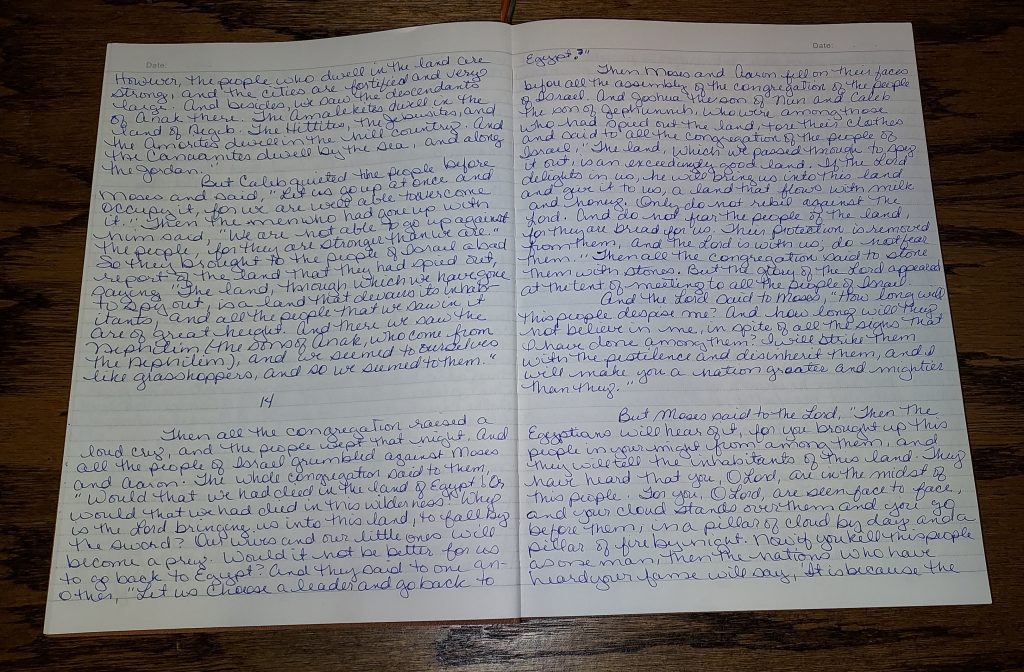 Date:
However, the people who dwell in the land are
strong, and the cities are fortified and very
large. And besides, we saw the descendants
of Anak there. The Amalekites dwell in the
land of Negeb. The Hittites, the Jebusites, and
the Amorites dwell in the hill country. And
the Canaanites dwell by the sea, and along
the Jordan."
But Caleb quieted the people before
Moses and said, "Let us go up at once and
occupy it, for we are well able to overcome
it." Then the men who had gone up with
him said, "We are not able to go up against
the people, for they are stronger than we are."
So they brought to the people of Israel a bad
report of the land that they had spied out,
saying, "The land, through which we have gone
to spy out, is a land that devours its inhab-
itants, and all the people that we saw in it
are of great height. And there we saw the
Nephilim (the sons of Anak, who come from
the Nephilim), and we seemed to ourselves
like grasshoppers, and so we seemed to them."
14
Then all the congregation raised a
loud cry, and the people wept that night. And
all the people of Israel grumbled against Moses
and Aaron. The whole congregation said to them,
"Would that we had died in the land of Egypt! Or
would that we had died in this wilderness! Why
is the Lord bringing us into this land, to fall by
the sword? Our wives and our little ones will
become a prey. Would it not be better for us
to go back to Egypt? And they said to one an-
other, "Let us choose a leader and go back to
Date:
Egypt?"
Then Moses and Aaron fell on their faces
before all the assembly of the congregation of the people
of Israel. And Joshua the son of Nun and Caleb
the son of Jephunneh, who were among those
who had spied out the land, tore their clothes
and said to all the congregation of the people of
Israel, "The land, which we passed through to spy
it out, is an exceedingly good land. If the Lord
delights in us, he will bring us into this land
and give it to us, a land that flows with milk
and honey. Only do not rebel against the
Lord. And do not fear the people of the land,
for they are bread for us. Their protection is removed
from them, and the Lord is with us; do not fear
them." Then all the congregation said to stone
them with stones. But the glory of the Lord appeared
at the tent of meeting to all the people of Israel.
And the Lord said to Moses, "How long will
this people despise me? And how long will they
not believe in me, in spite of all the signs that
I have done among them? I will strike them
with the pestilence and disinherit them, and I
will make you a nation greater and mightier
than they."
But Moses said to the Lord, "Then the
Egyptians will hear of it, for you brought up this
people in your might from among them, and
they will tell the inhabitants of this land. They
have heard that you, O Lord, are in the midst of
this people. For you, O Lord, are seen face to face,
and your cloud stands over them and you go
before them, in a pillar of cloud by day and a
pillar of fire by night. Now if you kill this people
as one man, then the nations who have
heard your fame will say, 'It is because the